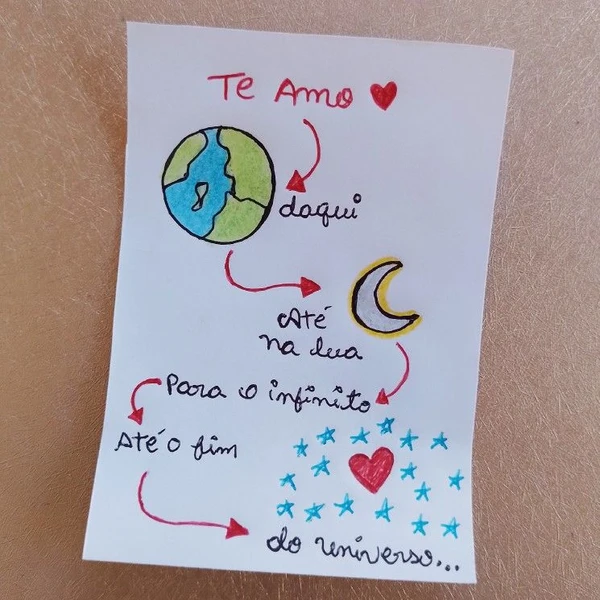 Te Amo
daqui
Até
na lua
Para o infinito
Até o fim
do universo...